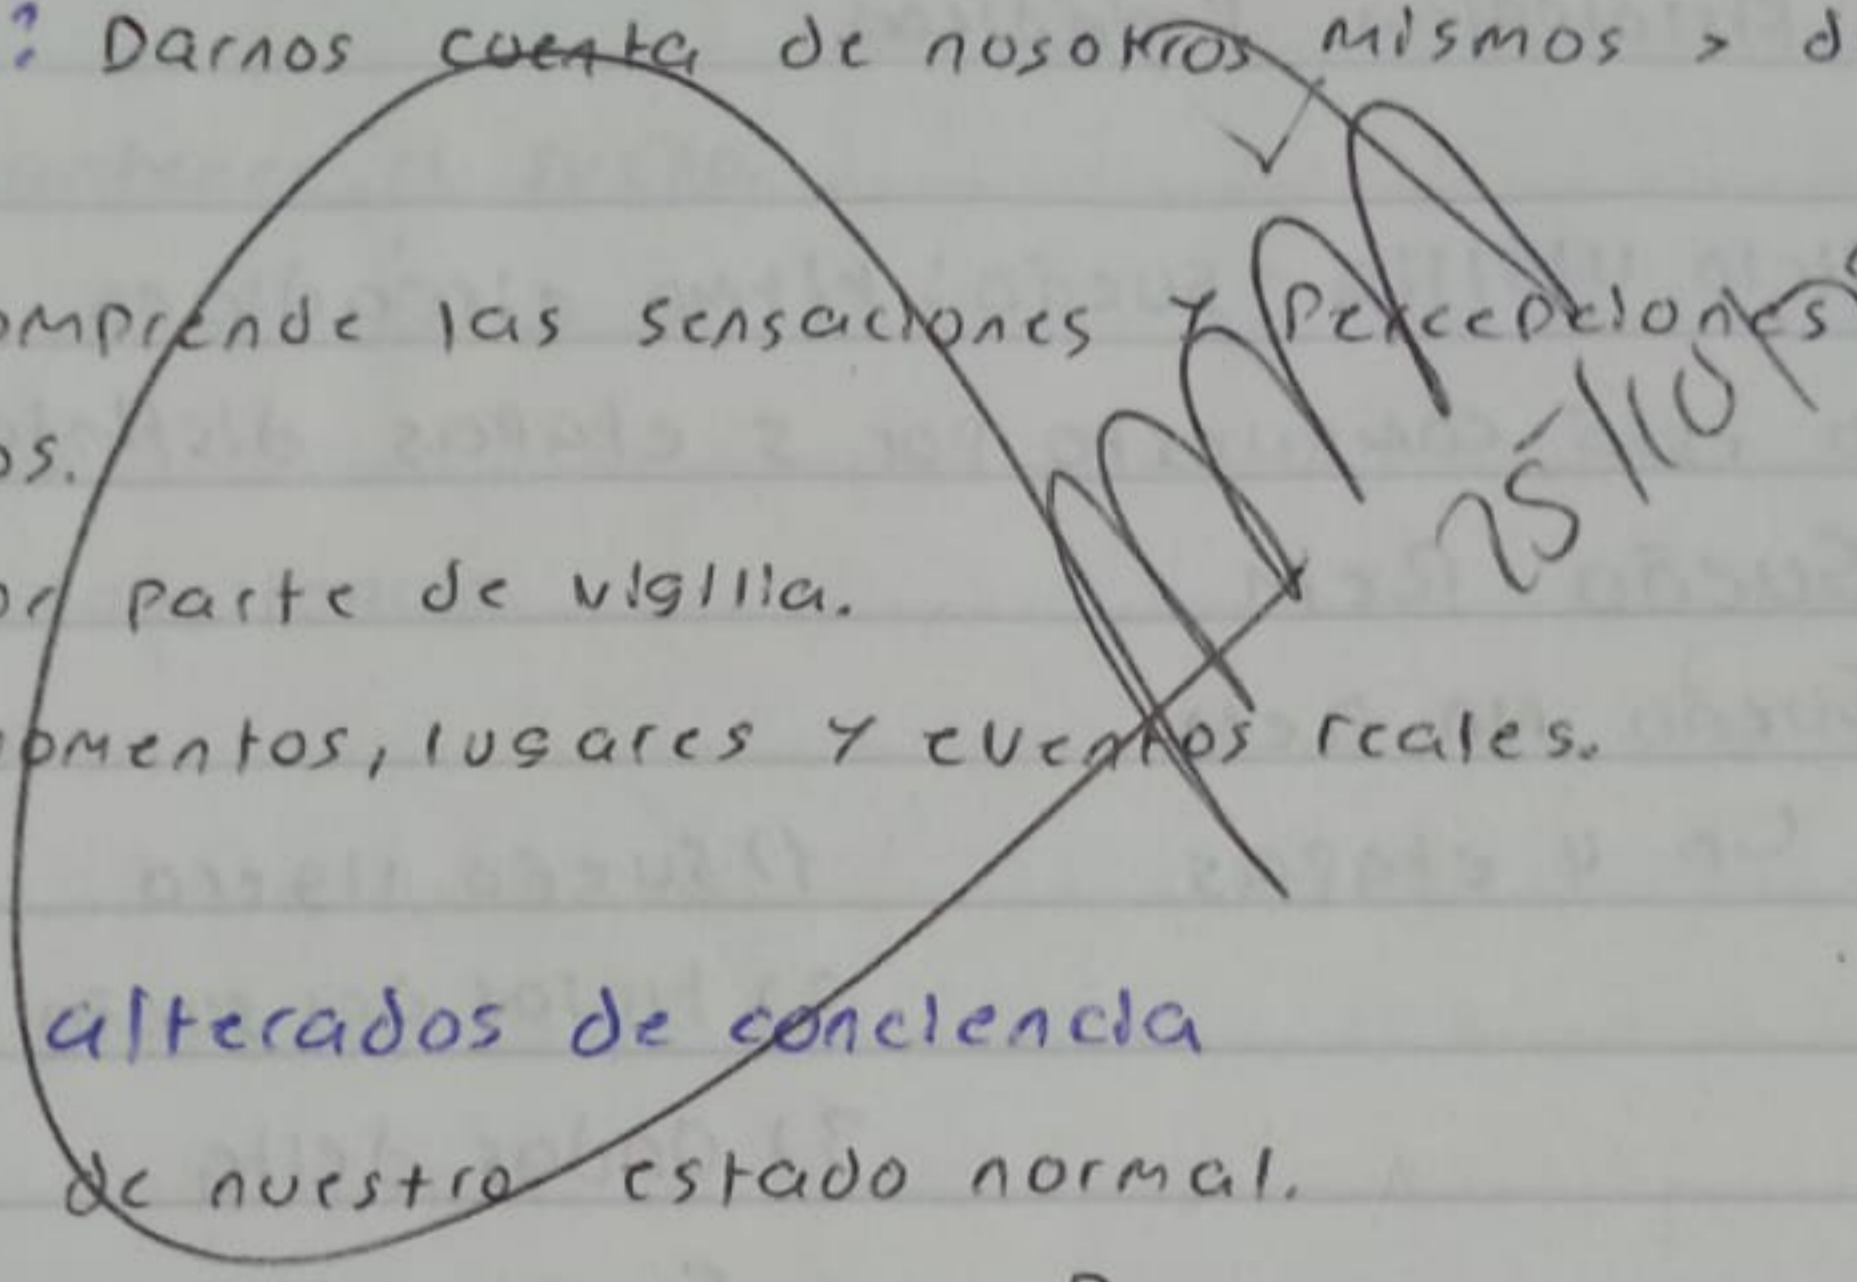 : Darnos cuenta de nosotros mismos > d
omprende las sensaciones y percepciones
os.
or parte de vigilia.
omentos, lugares y eventos reales.
alterados de conciencia
de nuestro estado normal.